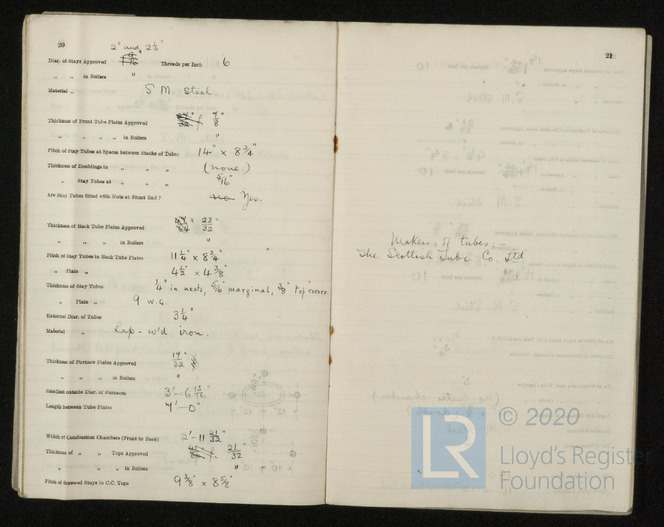 20
2" and 2½"
Diar. of Stays Approved Threads per Inch 6
„ „ in Boilers "
Material „ S M Steel
Thickness of Front Tube Plates Approved 7/8"
„ „ „ „ in Boilers "
Pitch of Stay Tubes at Spaces between Stacks of Tubes 14" x 8¾"
Thickness of Doublings in „ „ „ (none)
„ Stay Tubes at „ „ „ 5/16"
Are Stay Tubes fitted with Nuts at Front End? no Yes.
Thickness of Back Tube Plates Approved 23/32"
„ „ „ „ in Boilers "
Pitch of Stay Tubes in Back Tube Plates 11¼" x 8¾"
„ Plain „ 4½" x 4⅜"
Thickness of Stay Tubes ¼" in nests, 5/16" marginal, ⅜" top corners
„ Plain „ 9 W.G.
External Diar. of Tubes 3¼"
Material „ Lap-w'd iron.
Thickness of Furnace Plates Approved 17/32"
„ „ „ in Boilers "
Smallest outside Diar. of Furnaces 3'-6 13/16"
Length between Tube Plates 7'-0"
Width of Combustion Chambers (Front to Back) 2'-11 21/32"
Thickness of „ „ Tops Approved 21/32"
„ „ „ „ in Boilers "
Pitch of Screwed Stays in C.C. Tops 9⅜" x 8⅝"
21
Makers of tubes:—
The Scottish Tube Co. Ltd
© 2020
LR
Lloyd's Register
Foundation